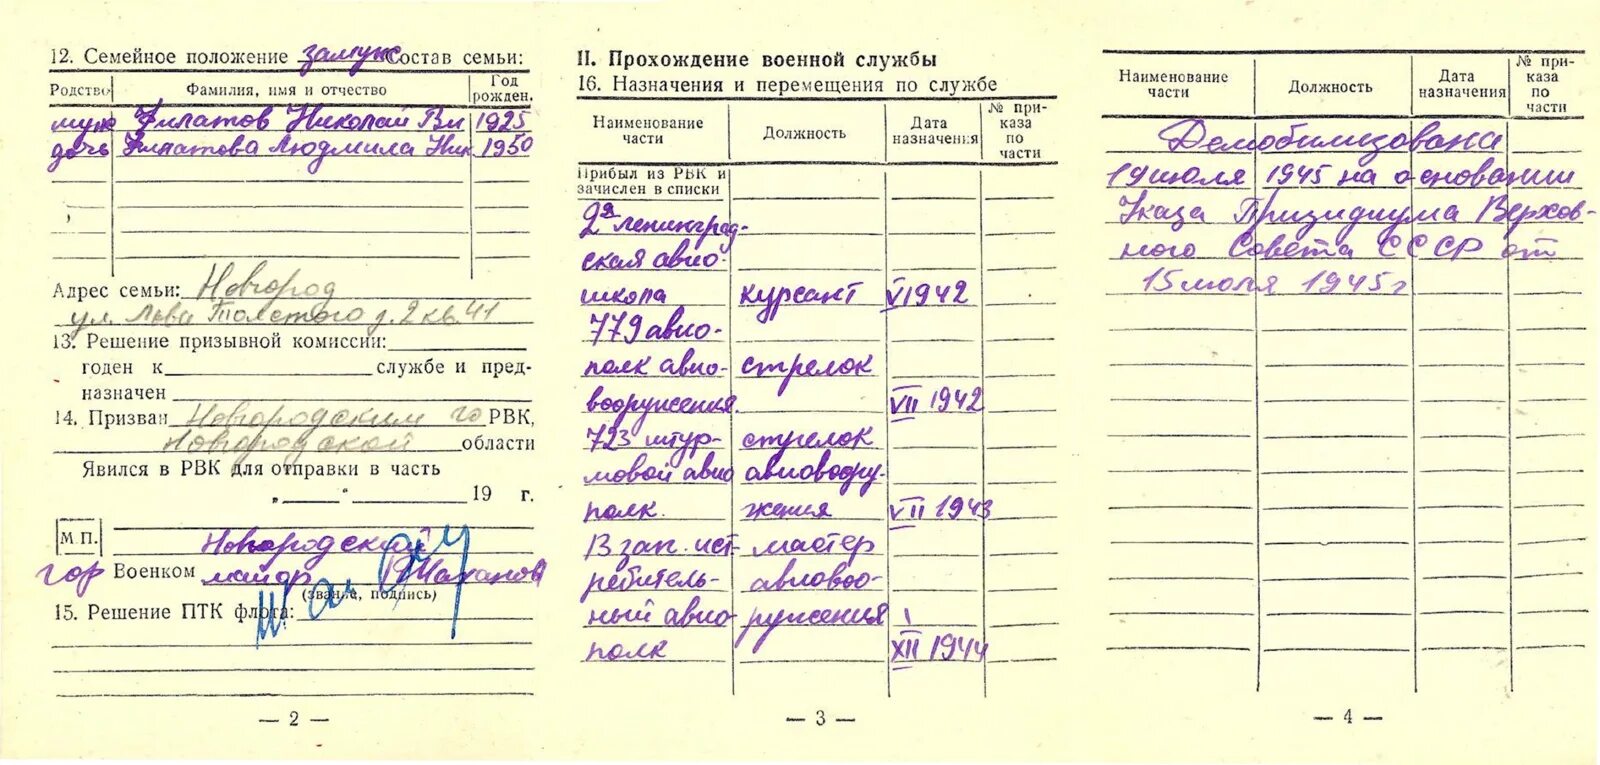 12. Семейное положение замуж Состав семьи:
Родство Фамилия, имя и отчество Год рожден.
муж Филатов Николай Ви 1925
дочь Филатова Людмила Ник. 1950
Адрес семьи: Новгород
ул. Льва Толстого д. 2 кв. 41
13. Решение призывной комиссии:
годен к службе и пред-
назначен
14. Призван Новгородским го РВК,
Новгородской области
Явился в РВК для отправки в часть
„ “ 19 г.
М П. Новгородский
гор Военком майор
(звание, подпись)
15. Решение ПТК флота:
— 2 —
II. Прохождение военной службы
16. Назначения и перемещения по службе
Наименование части Должность Дата назначения № при-каза по части
Прибыл из РВК и
зачислен в списки
2я ленинград-
ская авио-
школа курсант VI 1942
779 авио-
полк авио- стрелок
вооружения. VII 1942
723 штур- стрелок
мовой авио авиовоору-
полк. жения VII 1943
13 зап. ист- мастер
ребитель- авиовоо-
ный авио- ружения
полк XII 1944
— 3 —
Наименование части Должность Дата назначения № при-каза по части
Демобилизована
19 июля 1945 на основании
Указа Призидиума Верхов-
ного Совета СССР от
15 июля 1945 г
— 4 —